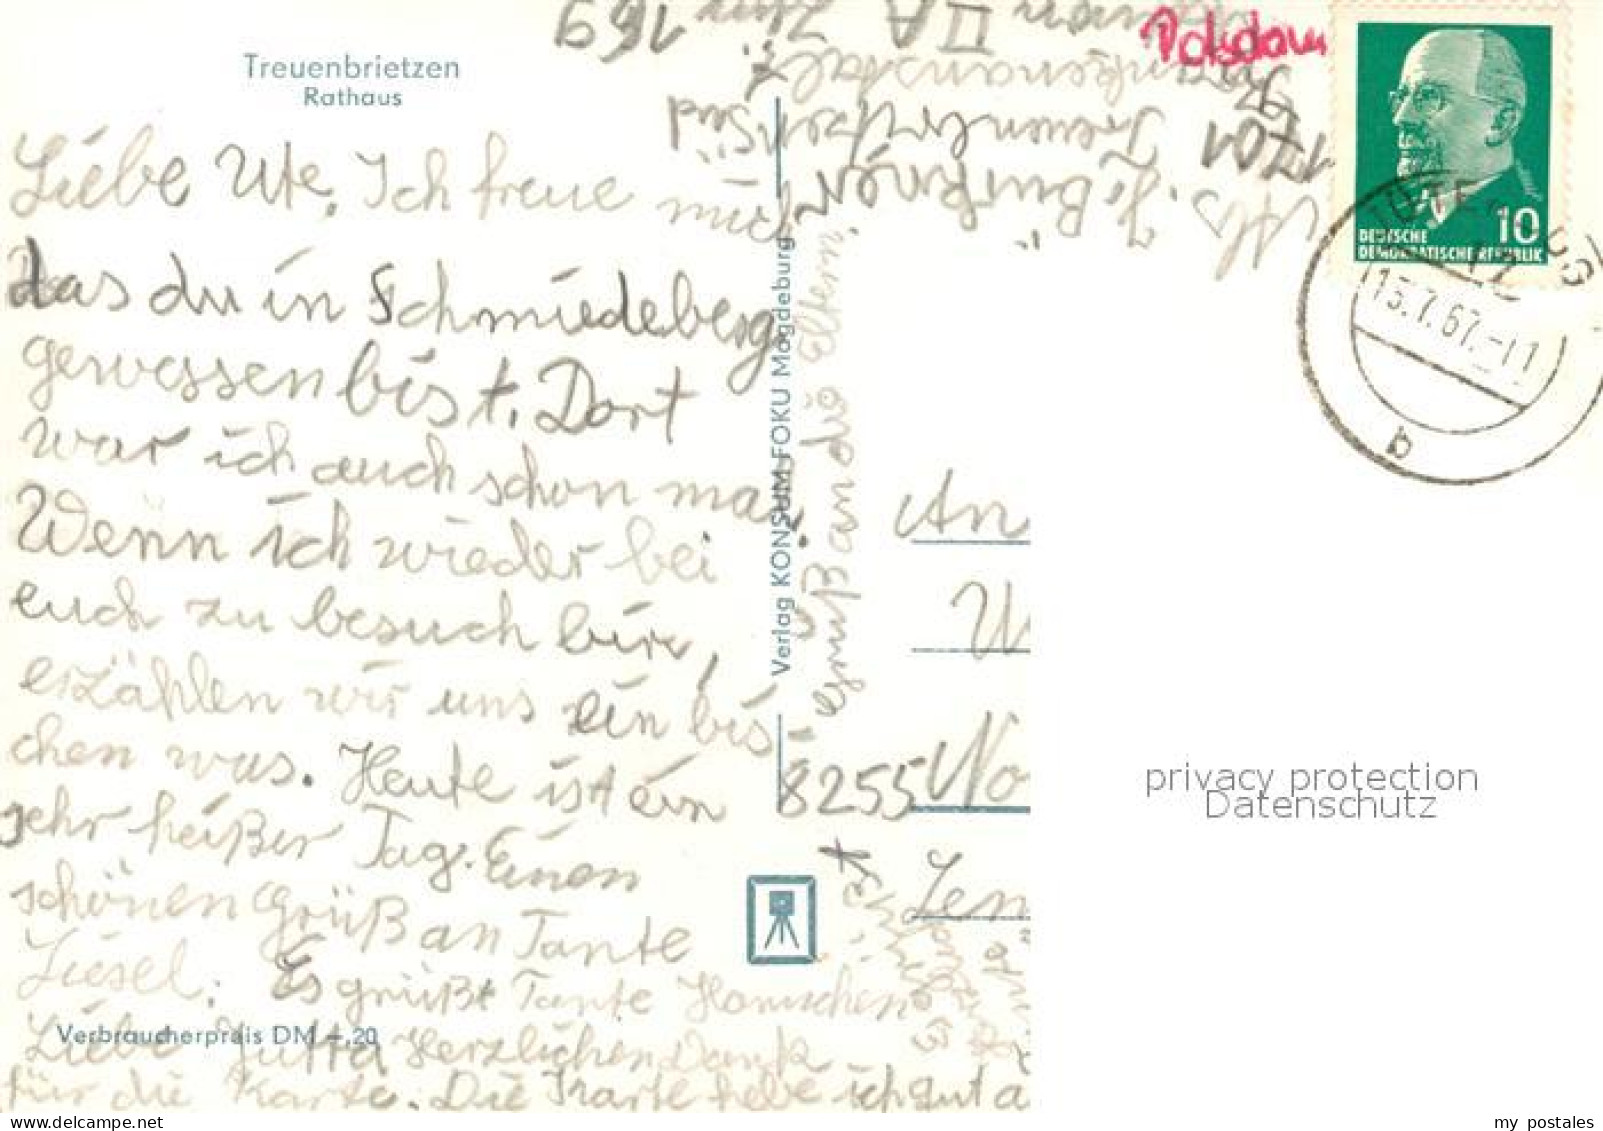 Treuenbrietzen
Rathaus
Liebe Ute, Ich freue mich
das du in Schmiedeberg
gewessen bist. Dort
war ich auch schon mal.
Wenn ich wieder bei
euch zu besuch bin,
erzählen wir uns ein bis-
chen was. Heute ist ein
sehr heißer Tag. Einen
schönen Grüß an Tante
Liesel. Es grüßt Tante Hannchen
Verbraucherpreis DM -,20
Liebe Jutta Herzlichen Dank
für die Karte. Die Karte hebe ich gut a
Verlag KONSUM FOKU Magdeburg
grüß an die Eltern,
Abs. J. Bürkner
1701 Treuenbrietzen Süd
169
Potsdam
10
DEUTSCHE
DEMOKRATISCHE REPUBLIK
15.7.67.-11
b
An
U
8255 No
Zen
privacy protection
Datenschutz
my postales